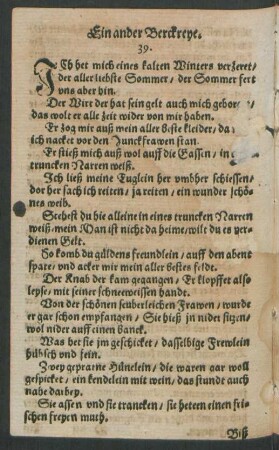 Ein ander Berckreye.
39.
ICh het mich eines kalten Winters verzeret/
der aller liebste Sommer/ der Sommer fert
vns aber hin.
Der Wirt der hat sein gelt auch mich
das wolt er alle zeit wider von mir haben.
Er zog mir auß mein aller beste kleider/
ich nacket vor den Junckfrawen stan.
Er stieß mich auß wol auff die Gassen/ in
truncken Narren weiß.
Ich ließ meine Euglein her vmbher schiessen/
dor her sach ich reiten/ ja reiten/ ein wunder schö-
nes weib.
Seehest du hie alleine in eines truncken Narren
weiß/ mein Man ist nicht da heime/ wilt du es ver-
dienen Gelt.
So komb du güldens freundlein/ auff den abent
spate/ vnd acker mir mein aller bestes feldt.
Der Knab der kam gegangen/ Er klopffet also
leyse/ mit seiner schneeweissen handt.
Von der schönen seuberleichen Frawen/ wurde
er gar schon empfangen/ Sie hieß jn nider sitzen/
wol nider auff einen banck.
Was het sie jm geschicket/ dasselbige Frewlein
hübsch vnd fein.
Zwey gepratne Hünelein/ die waren gar woll
gespicket/ ein kendelein mit wein/ das stundt auch
nahe darbey.
Sie assen vnd sie trancken/ sie heten einen fri-
schen freyen muth.
Biß